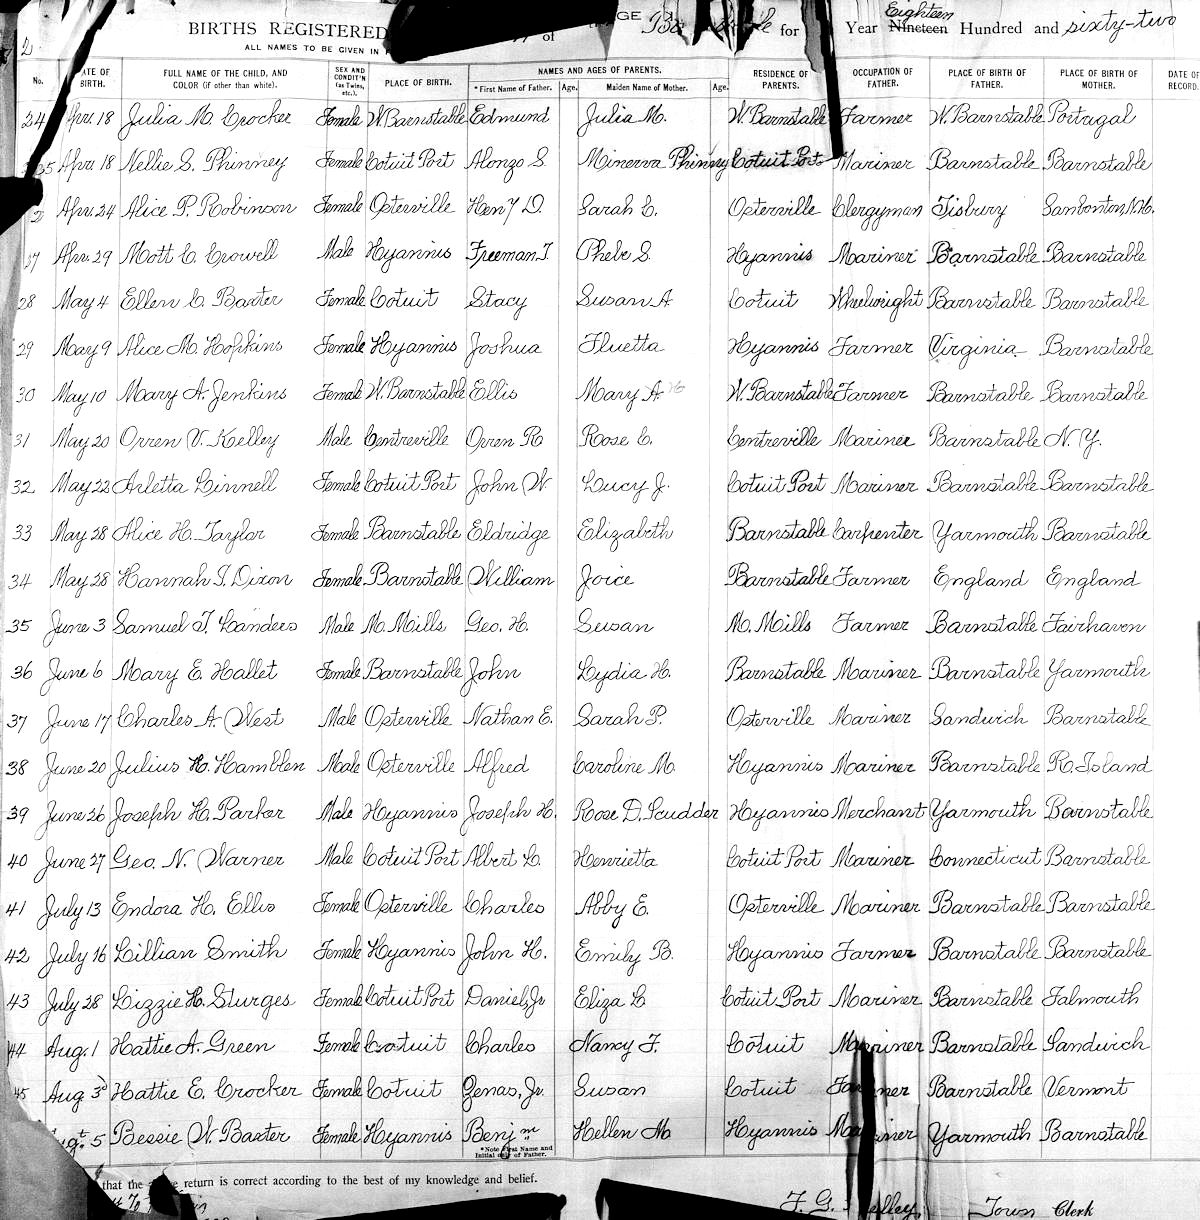 2
BIRTHS REGISTERED of Ba le for Year Eighteen Nineteen Hundred and sixty-two
ALL NAMES TO BE GIVEN IN
No. DATE OF BIRTH. FULL NAME OF THE CHILD, AND COLOR (if other than white). SEX AND CONDIT'N (as Twins, etc.). PLACE OF BIRTH. NAMES AND AGES OF PARENTS. * First Name of Father. Age. Maiden Name of Mother. Age. RESIDENCE OF PARENTS. OCCUPATION OF FATHER. PLACE OF BIRTH OF FATHER. PLACE OF BIRTH OF MOTHER. DATE OF RECORD.
24 Apr. 18 Julia M. Crocker Female W. Barnstable Edmund Julia M. W. Barnstable Farmer W. Barnstable Portugal
25 Apr. 18 Nellie S. Phinney Female Cotuit Port Alonzo S Minerva Phinny Cotuit Port Mariner Barnstable Barnstable
2 Apr. 24 Alice P. Robinson Female Osterville Hen'y D. Sarah E. Osterville Clergyman Tisbury Sanbonton, N.H.
27 Apr. 29 Mott C. Crowell Male Hyannis Freeman T. Phebe S. Hyannis Mariner Barnstable Barnstable
28 May 4 Ellen C. Baxter Female Cotuit Stacy Susan A Cotuit Wheelwright Barnstable Barnstable
29 May 9 Alice M. Hopkins Female Hyannis Joshua Fluetta Hyannis Farmer Virginia Barnstable
30 May 10 Mary A. Jenkins Female W. Barnstable Ellis Mary A W. Barnstable Farmer Barnstable Barnstable
31 May 20 Orren V. Kelley Male Centreville Orren R Rose C. Centreville Mariner Barnstable N.Y.
32 May 22 Arletta Linnell Female Cotuit Port John W Lucy J. Cotuit Port Mariner Barnstable Barnstable
33 May 28 Alice H. Taylor Female Barnstable Eldridge Elizabeth Barnstable Carpenter Yarmouth Barnstable
34 May 28 Hannah I. Dixon Female Barnstable William Joice Barnstable Farmer England England
35 June 3 Samuel T. Landers Male M. Mills Geo. H. Susan M. Mills Farmer Barnstable Fairhaven
36 June 6 Mary E. Hallet Female Barnstable John Lydia H. Barnstable Mariner Barnstable Yarmouth
37 June 17 Charles A. West Male Osterville Nathan E. Sarah P. Osterville Mariner Sandwich Barnstable
38 June 20 Julius H. Hamblen Male Osterville Alfred Caroline M. Hyannis Mariner Barnstable R. Island
39 June 26 Joseph H. Parker Male Hyannis Joseph H. Rose D. Scudder Hyannis Merchant Yarmouth Barnstable
40 June 27 Geo. N. Warner Male Cotuit Port Albert L. Henrietta Cotuit Port Mariner Connecticut Barnstable
41 July 13 Endora H. Ellis Female Osterville Charles Abby E. Osterville Mariner Barnstable Barnstable
42 July 16 Lillian Smith Female Hyannis John H. Emily B. Hyannis Farmer Barnstable Barnstable
43 July 28 Lizzie H. Sturges Female Cotuit Port Daniel, Jr Eliza L Cotuit Port Mariner Barnstable Falmouth
44 Aug. 1 Hattie A. Green Female Cotuit Charles Nancy F. Cotuit Mariner Barnstable Sandwich
45 Aug 3d Hattie E. Crocker Female Cotuit Zenas, Jr. Susan Cotuit Farmer Barnstable Vermont
Augt. 5 Bessie W. Baxter Female Hyannis Benjm Hellen M Hyannis Mariner Yarmouth Barnstable
*Note First Name and Initial only of Father.
that the return is correct according to the best of my knowledge and belief.
F. G. Kelley, Town Clerk